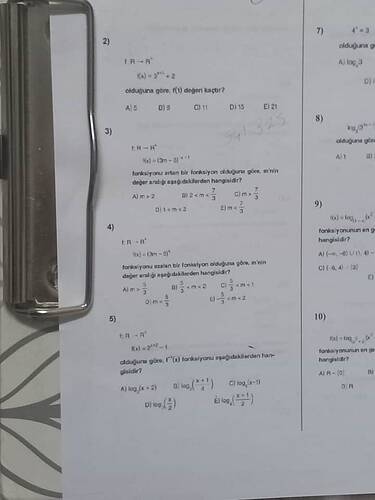 2)
f: R → R⁺
f(x) = 3ˣ⁺¹ + 2
olduğuna göre, f(1) değeri kaçtır?
A) 5 D) 8 C) 11 D) 15 E) 21
3)
f: R → R⁺
f(x) = (3m – 5)
fonksiyonu artan bir fonksiyon olduğuna göre, m'nin
değer aralığı aşağıdakilerden hangisidir?
A) m > 2 B) 2 < m < 7/3 C) m > 7/3
D) 1 < m < 2 E) m < 7/3
4)
f: R → R⁺
f(x) = (3m – 5)ˣ
fonksiyonu azalan bir fonksiyon olduğuna göre, m'nin
değer aralığı aşağıdakilerden hangisidir?
A) m > 5/3 B) 5/3 < m < 2 C) 5/3 < m < 1
D) m < 5/3 E) -5/3 < m < 2
5)
f: R → R⁺
f(x) = 2ˣ⁺² – 1
olduğuna göre, f⁻¹(x) fonksiyonu aşağıdakilerden han-
gisidir?
A) log₂(x + 2) B) log₂((x + 1)/4) C) log₂(x–1)
D) log₂(x/2) E) log₂((x + 1)/2)
7) 4ˣ = 3
olduğuna g
A) log₄3
8)
olduğuna göre
A) 1 B)
9)
fonksiyonunun en ge
hangisidir?
E)
10)
fonksiyonunun en ge
hangisidir?
A) R – {0} B)
D) R